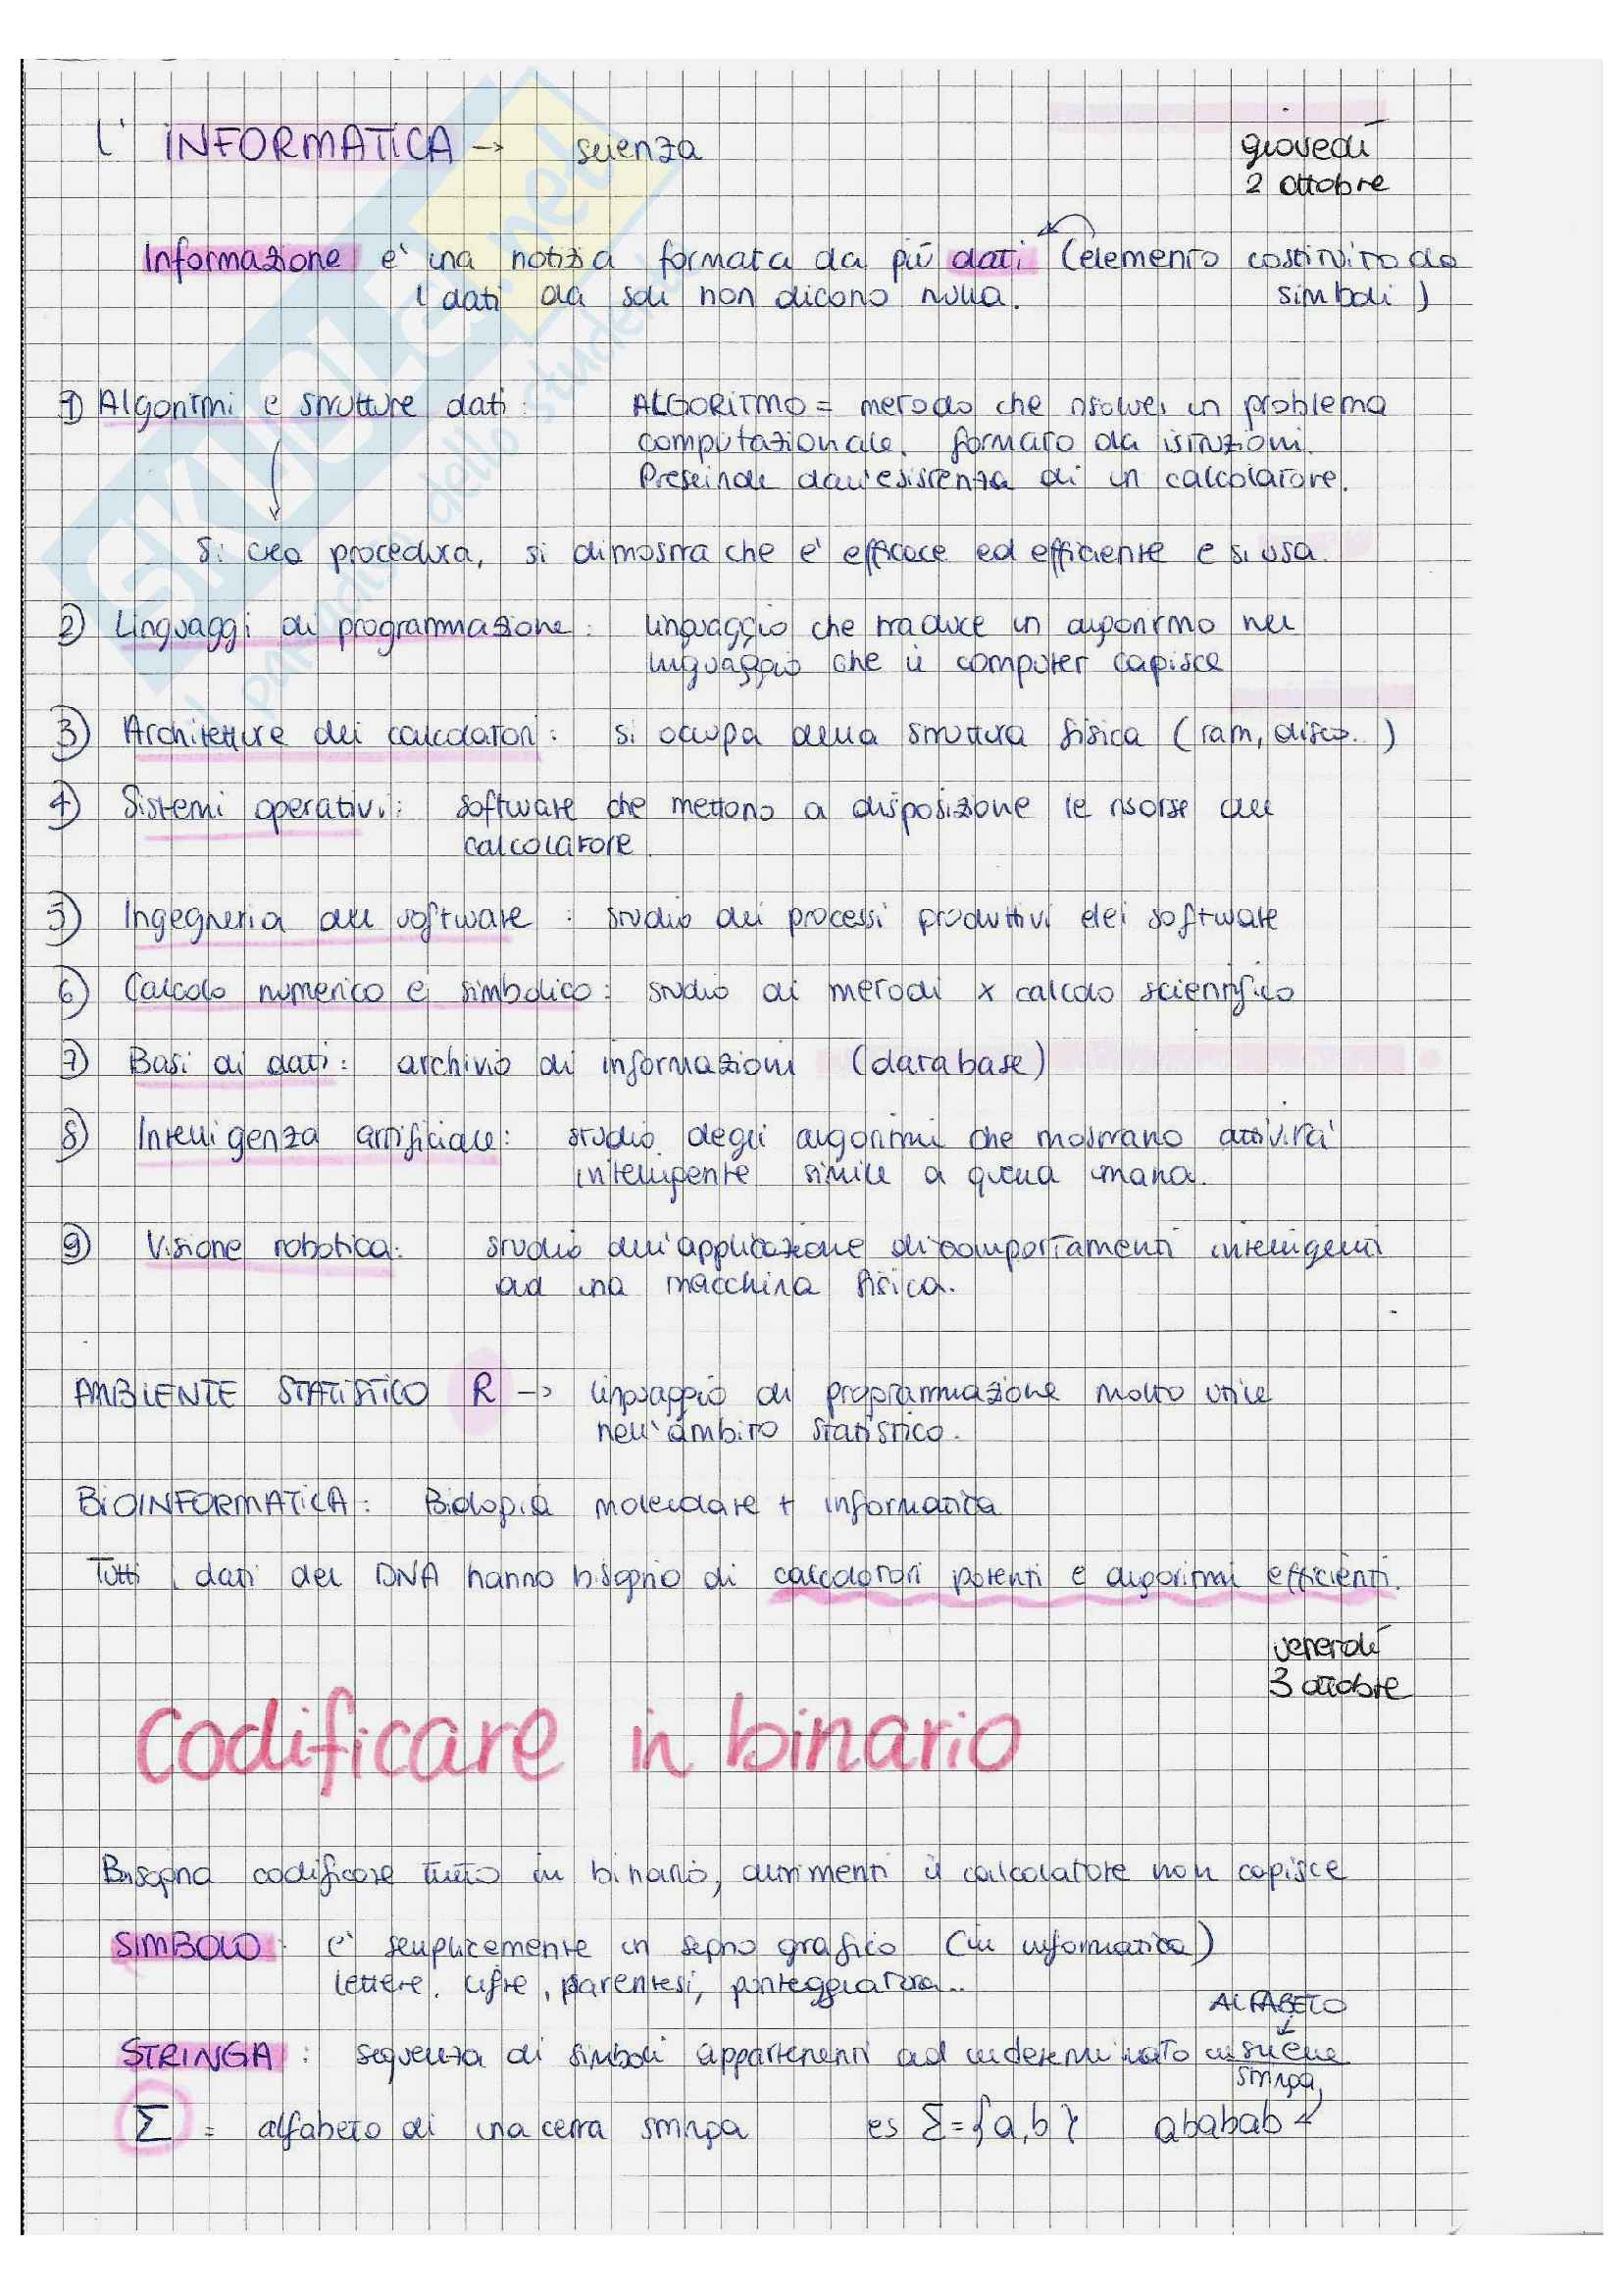 L' INFORMATICA -> scienza
giovedì
2 ottobre
Informazione e' una notizia formata da più dati (elemento costituito da
I dati da soli non dicono nulla. simboli)
1) Algoritmi e strutture dati: ALGORITMO = metodo che risolve un problema
computazionale. formato da istruzioni.
Prescinde dall'esistenza di un calcolatore.
Si crea procedura, si dimostra che e' efficace ed efficiente e si usa.
2) Linguaggi di programmazione: linguaggio che traduce un algoritmo nel
linguaggio che il computer capisce
3) Architetture dei calcolatori: si occupa della struttura fisica (ram, disco..)
4) Sistemi operativi: software che mettono a disposizione le risorse del
calcolatore.
5) Ingegneria del software: studio dei processi produttivi dei software
6) Calcolo numerico e simbolico: studio di metodi x calcolo scientifico
7) Basi di dati: archivio di informazioni (database)
8) Intelligenza artificiale: studio degli algoritmi che mostrano attivita'
intelligente simile a quella umana.
9) Visione robotica: studio dell'applicazione di comportamenti intelligenti
ad una macchina fisica.
AMBIENTE STATISTICO R -> linguaggio di programmazione molto utile
nell'ambito statistico.
BIOINFORMATICA: Biologia molecolare + informatica
Tutti i dati del DNA hanno bisogno di calcolatori potenti e algoritmi efficienti.
venerdì
3 ottobre
Codificare in binario
Bisogna codificare tutto in binario, altrimenti il calcolatore non capisce
SIMBOLO: e' semplicemente un segno grafico (in informatica)
lettere, cifre, parentesi, punteggiatura..
ALFABETO
STRINGA: sequenza di simboli appartenenti ad un determinato insieme
stringa
Σ = alfabeto di una certa stringa es Σ={a,b} ababab
SKUOLA.net
il paradiso dello studente